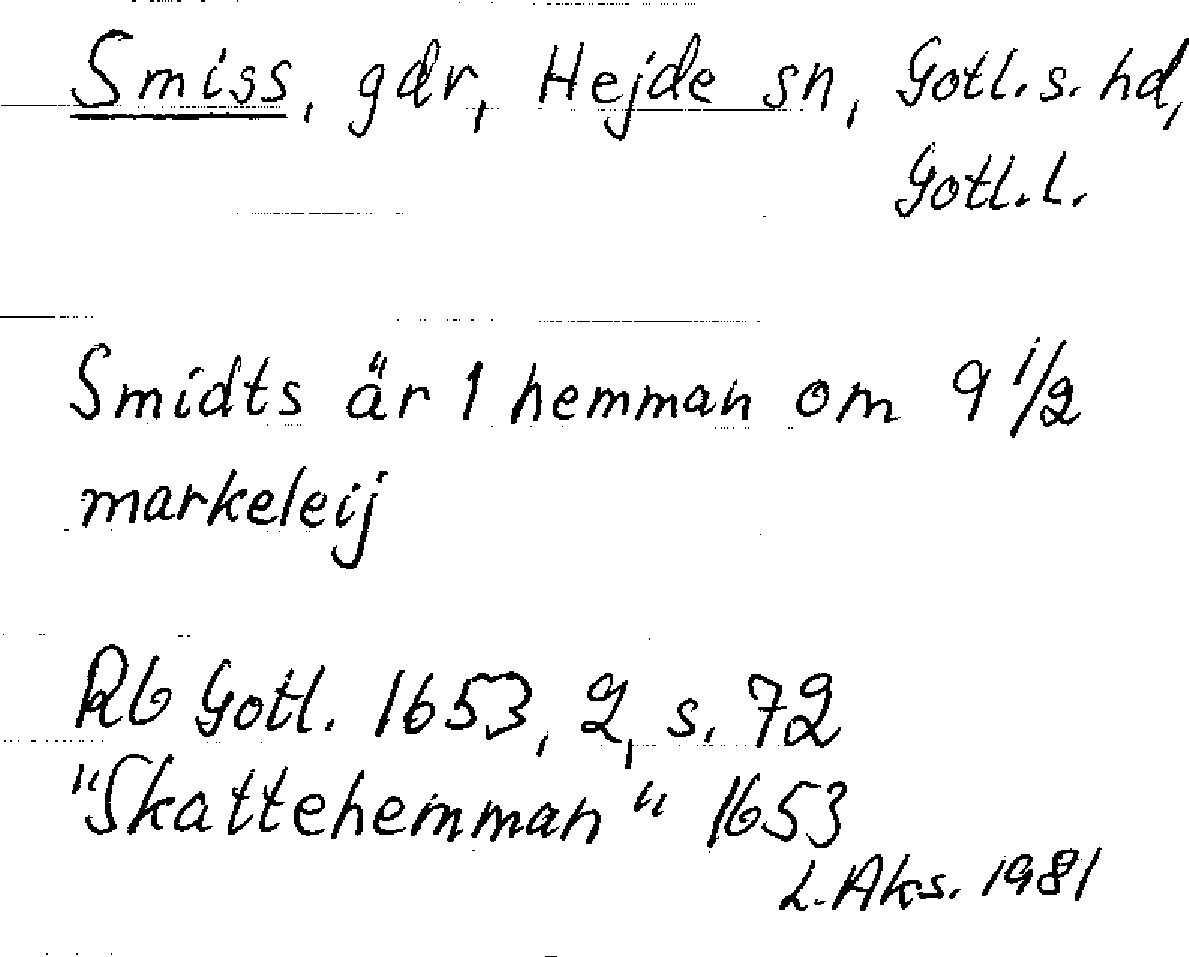 Smiss, gdr, Hejde sn, Gotl. s. hd,
Gotl. l.
Smidts är 1 hemman om 9 1/2
markeleij
Rb Gotl. 1653, 2, s. 72
"Skattehemman" 1653
L. Aks. 1981